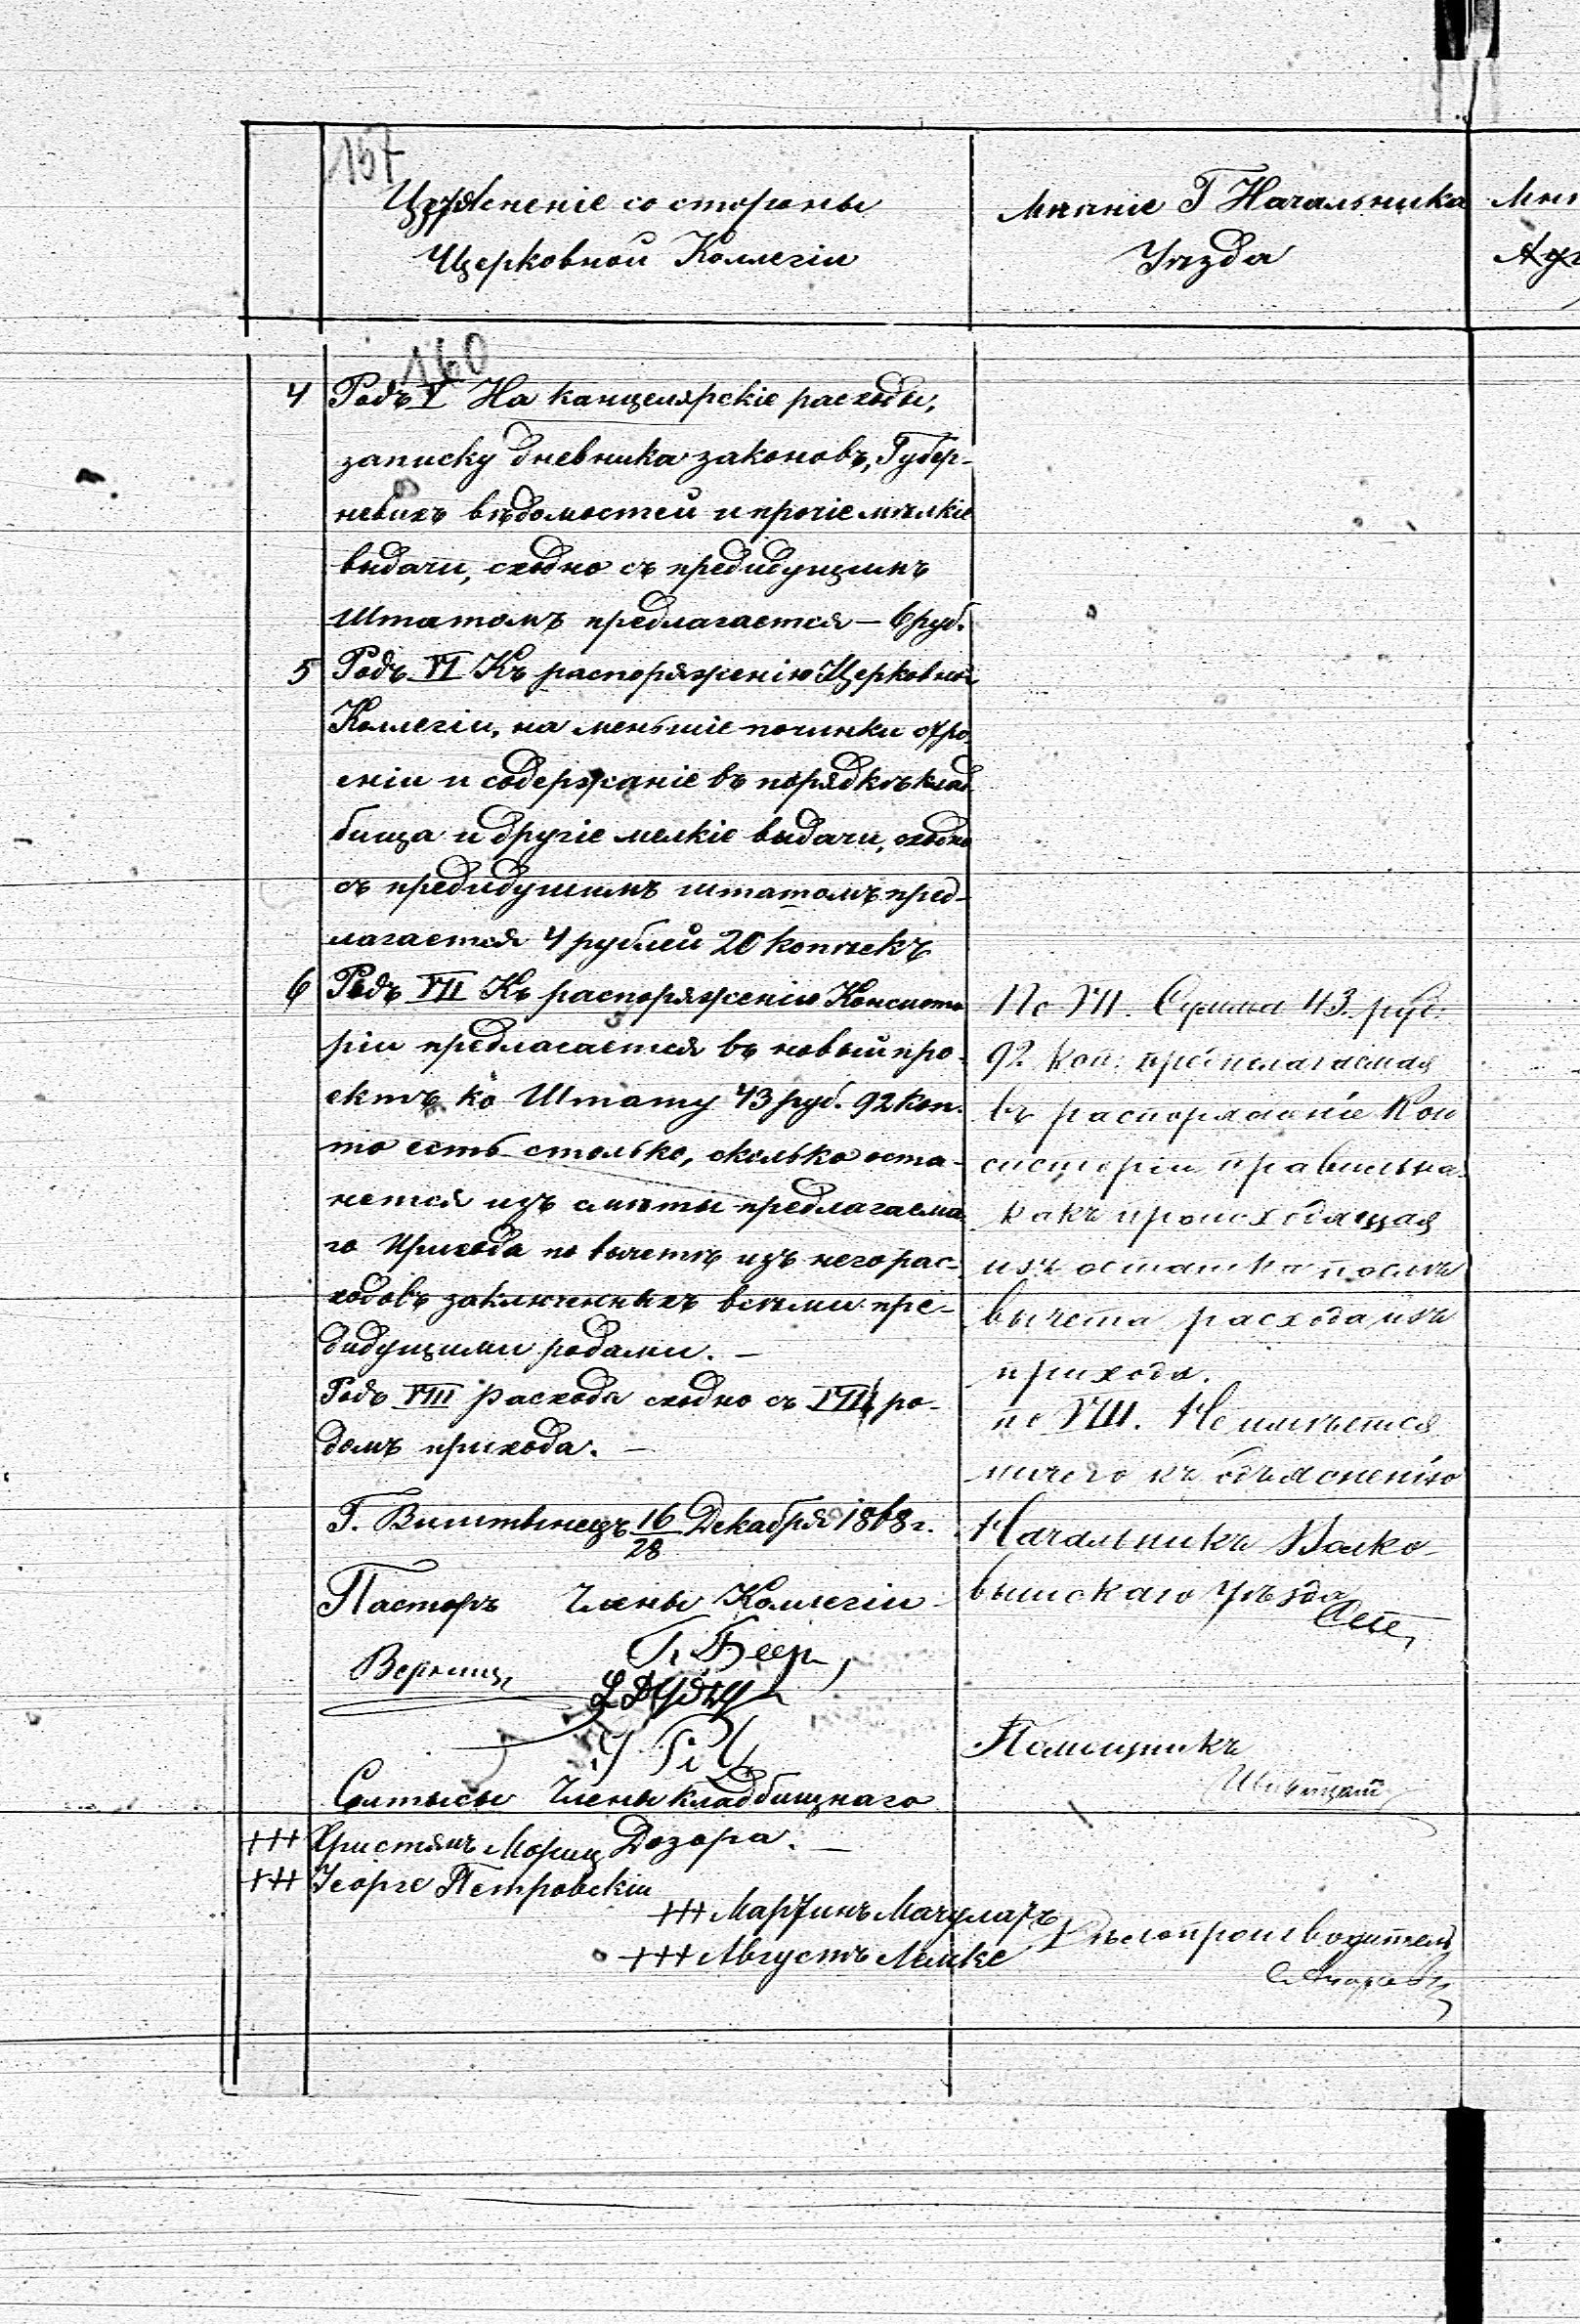 157
со стороны
Церковной Коллегіи
Мнѣніе Г Начальника
Уѣзда
160
4 Родъ V На канцелярскіе расходы,
записку дневника законовъ, Губер-
невихъ вѣдомостей и прочіе мѣлкіе
выдачи, сходно съ предидущимъ
Штатомъ предлагается — 6 руб.
5 Родъ VI Къ распоряженію Церковной
Коллегіи, на меньшіе починки стро
еніи и содержаніе въ порядкѣ клад
бища и другіе мелкіе выдачи, сходно
съ предидущимъ штатомъ пред-
лагается 4 рублей 20 копѣекъ
6 Родъ VII Къ распоряженію Консисто
ріи предлагается въ новый про-
ектъ ко Штату 43 руб. 92 коп.
то есть столько, сколько оста-
нется изъ смѣты предлагаема
го Прихода по вычетѣ изъ него рас-
ходовъ заключенныхъ всѣми пре-
дидущими родами. —
Родъ VIII расхода сходно съ VIII ро-
домъ прихода. —
Г. Виштынецъ 16/28 Декабря 1868 г.
Пасторъ Члены Коллегіи
Г. Беер
Солтысы Члены кладбищнаго
+++ Христянъ Мориц Дозора. —
+++ Георге Петровскіи
+++ Мартинъ Мачулатъ
+++ Августъ Лемке
По VII. Сумма 43. руб:
92 коп: предполагаемая
въ распоряженіе Кон
систоріи правильна
какъ происходящая
изъ остатка послѣ
вычета расхода изъ
прихода.
по VIII. Не имѣется
ничего къ объясненію
Начальникъ Волко-
вышскаго уѣзда
Помощникъ
Дѣлопроизводитель